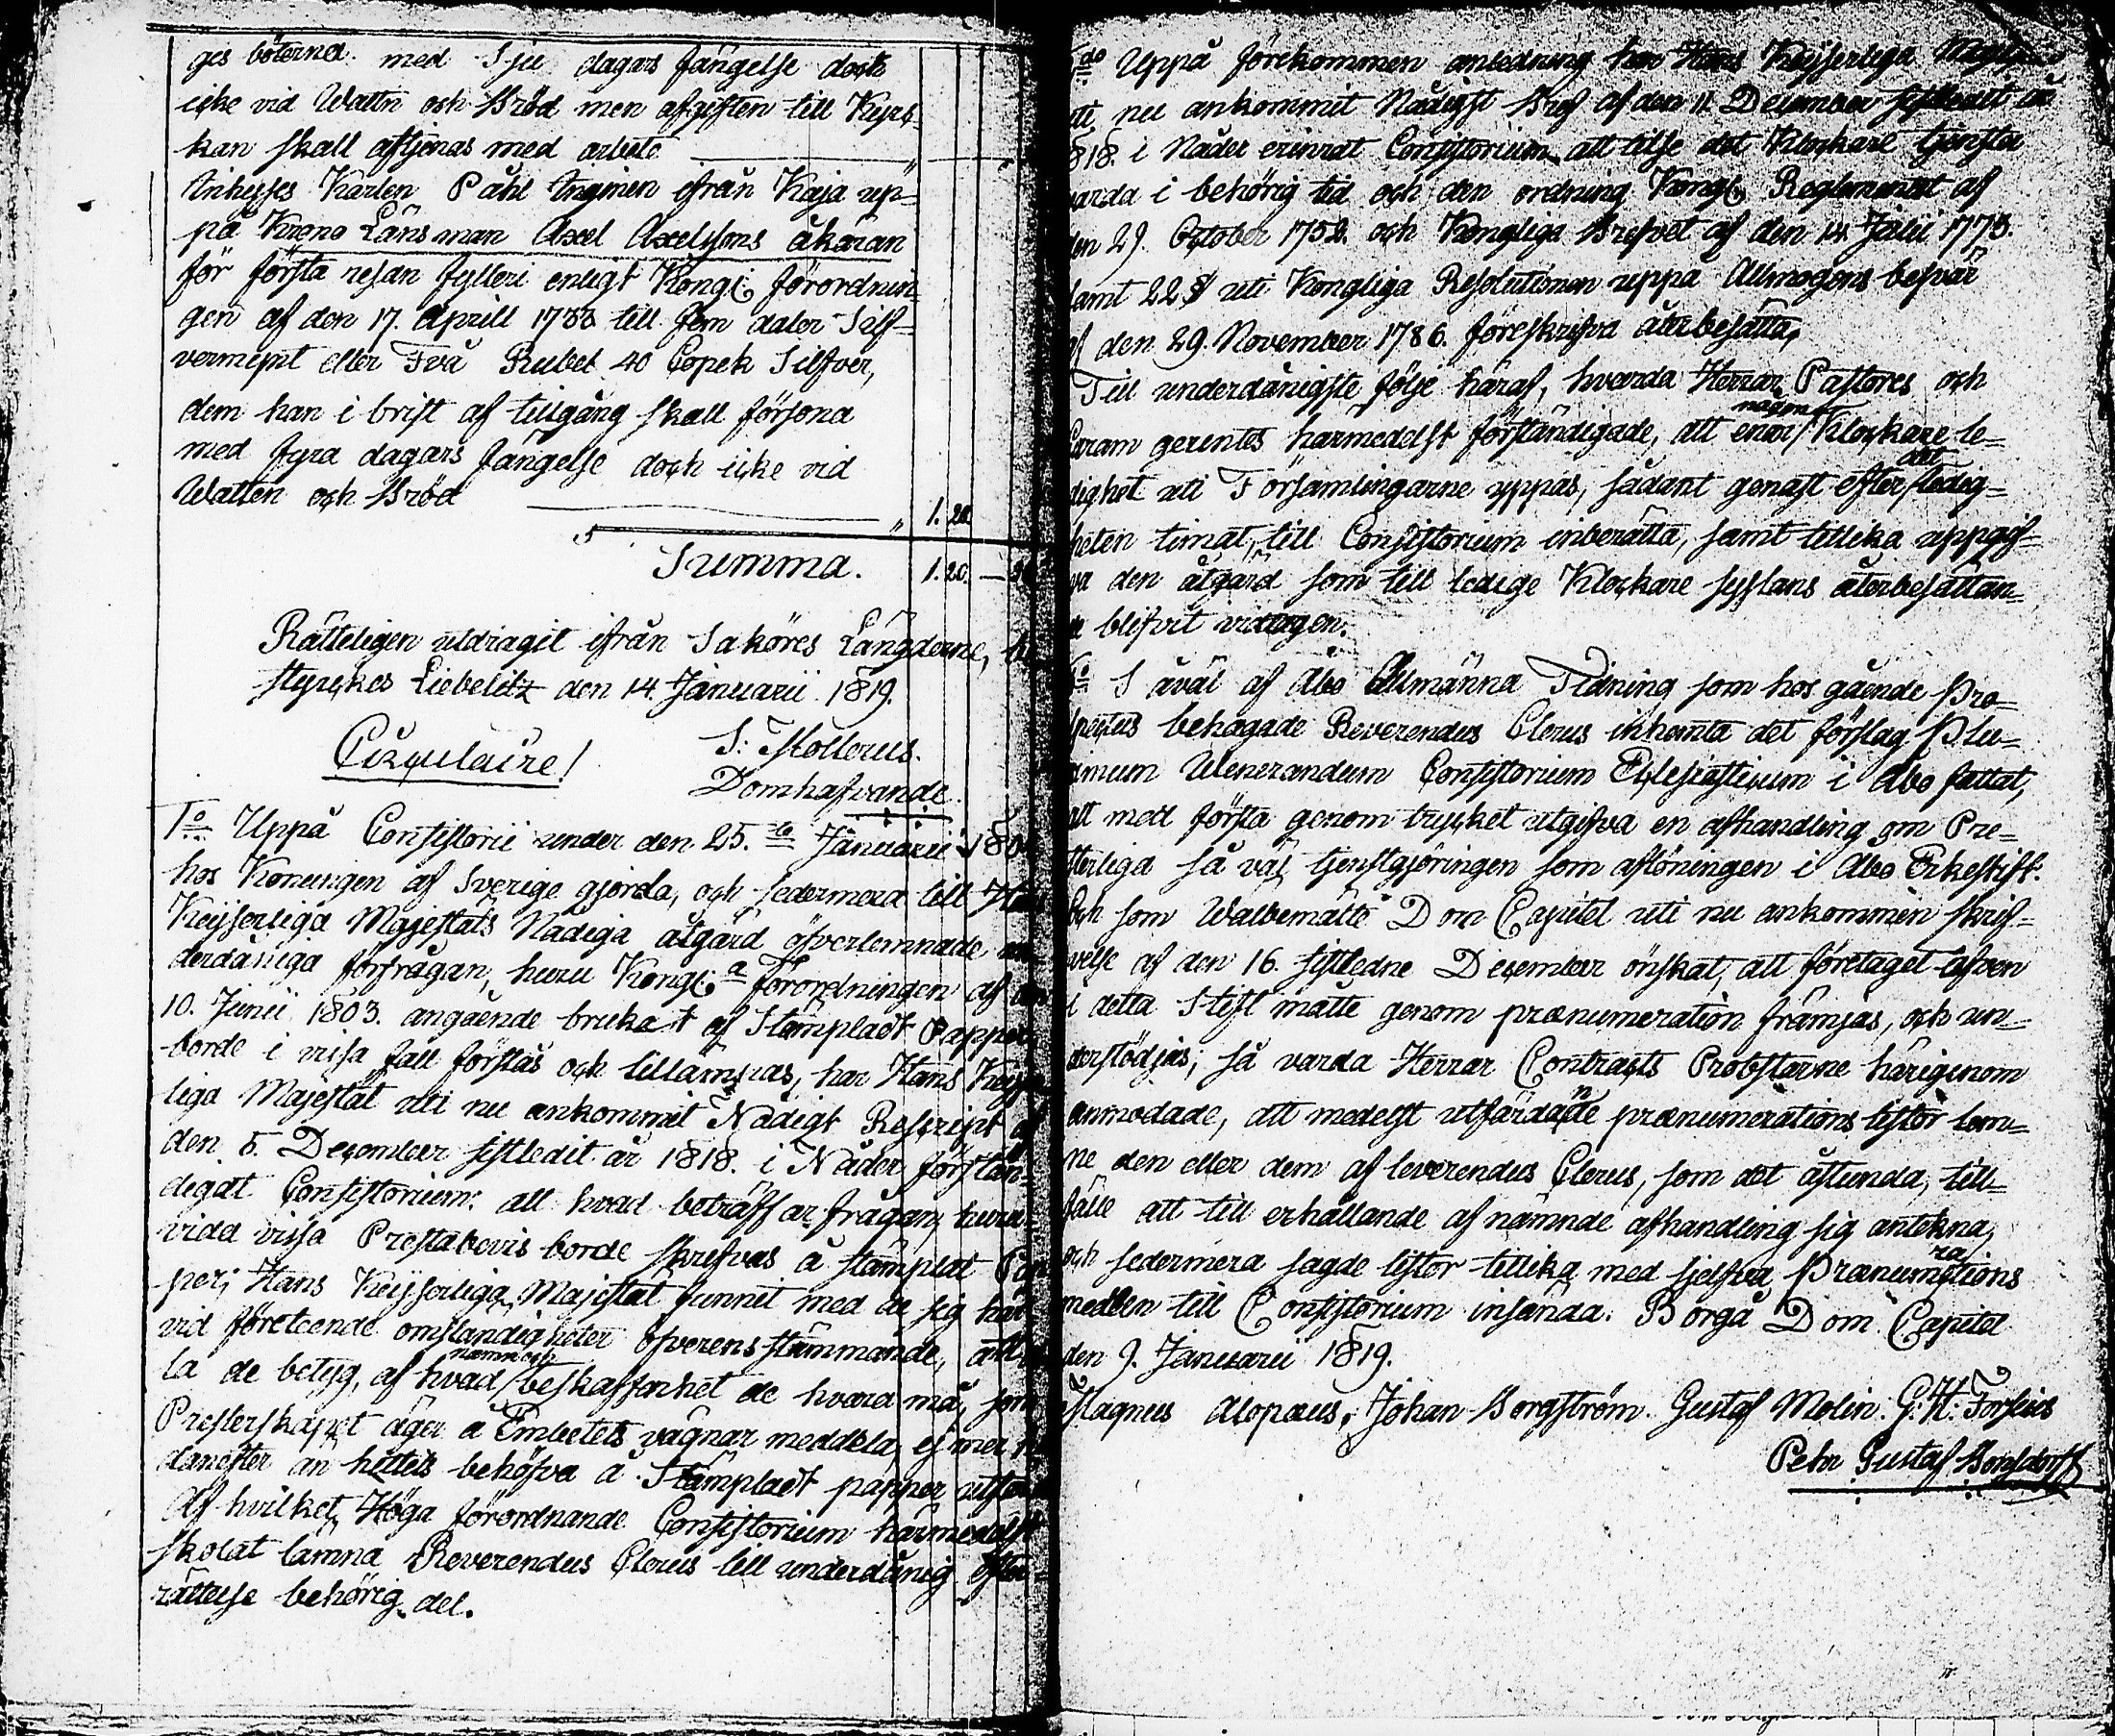 ges böterna med Sju dagars fängelse doch
icke vid Wattn och Bröd men afgiften till Kyrc-
kan skall aftjenas med arbete
Inhyses Karlen Påhl Inginen ifrån Kaja up-
på Krono Länsman Axel Axelssons åkäran
för första resan fylleri enligt Kongl. förordnin-
gen af den 17. Aprill 1733 till fem daler Silf-
vermynt eller Två Rubel 40 Copek Silfver,
dem han i brist af tillgång skall försona
med fyra dagars fängelse doch icke vid
Watten och Bröd " 1. 20
Summa. 1. 20. —
Rätteligen utdragit ifrån Saköres Längderne,
styrckes Liebelitz den 14. Januarii 1819.
S: Mollerus.
Domhafvande.
Circulaire!
1o Uppå Consistorii under den 25.te Januarii
hos Konungen af Sverige gjorda, och sedermera till
Keijserliga Majestäts Nådiga åtgärd öfverlemnade un-
derdåniga förfrågan, huru Kongl.a Förordningen af den
10. Junii 1803. angående bruket af Stämpladt Papper
borde i vissa fall förstås och tillämpas, har Hans Keijser-
liga Majestät uti nu ankommit Nådigt Rescript af
den 5. December sistledit år 1818. i Nåder förstän-
digat Consistorium: att hvad beträffar frågan, huru-
vida vissa Prestabevis borde skrefvas å stämplat Pap-
per; Hans Keijserliga Majestät funnit med de sig här
vid företeende omständigheter öfverensstämmande, att
la de betyg, af hvad namn och beskaffenhet de hvara må, som
Presterskapet äger å Embetets vägnar meddela, ej mer
danefter än hittils behöfva å Stämpladt papper
Af hvilket Höga förordnande Consistorium härmedelst
skolat lämna Reverendus Clerus till underdånig efter-
rättelse behörig del.
2do Uppå förekommen anledning har Hans Keijserliga Majestät
uti nu ankommit Nådigst Bref af den 11. December sistledit år
1818. i Nåder erinrat Consistorium att tilse det Klockare tjenster
varda i behörig tid och den ordning Kongl. Reglementet af
den 29. October 1752. och Kongliga Brefvet af den 14. Julii 1773.
samt 22 § uti Kongliga Resolutionen uppå Allmogens besvär
af den 29. November 1786. föreskrifva återbesatta,
Till underdånigste följe häraf, hvarda Herrar Pastores och
Curam gerentes härmedelst förständigade, att enär någon Klockare le-
dighet uti Församlingarne yppas, sådant genast efter det ledig-
heten timat, till Consistorium inberätta, samt tillika uppgif-
va den åtgärd som till ledige Klockare sysslans återbesättan-
de blifvit vidtagen.
3o Såväl af Åbo Allmänna Tidning som hos gående Pro-
spectus behagade Reverendus Clerus inhemta det förslag Plu-
rimum Wenerandum Consistorium Ecclesiasticum i Åbo fattat,
att med första genom trycket utgifva en afhandling om Pre-
sterliga så väl tjenstgjöringen som aflöningen i Åbo Erkestift.
Och som Walbemälte Dom Capitel uti nu ankommen skrif-
velse af den 16. sistledne December önskat, att företaget äfven
i detta Stift måtte genom prænumeration främjas, och un-
derstödjas; så varda Herrar Contracts Probstarne härigenom
anmodade, att medelst utfärdande prænumerations listor lem-
ne den eller dem af Reverendus Clerus, som det åstunda, till-
fälle att till erhållande af nämnde afhandling sig antekna,
och sedermera sagde listor tillika med sjelfva Prænumerations
medlen till Consistorium insända. Borgå Dom Capitel
den 9. Januarii 1819.
Magnus Alopæus, Johan Borgström. Gustaf Molin. G. H. Forsius
Petr Gustaf Bonsdorff